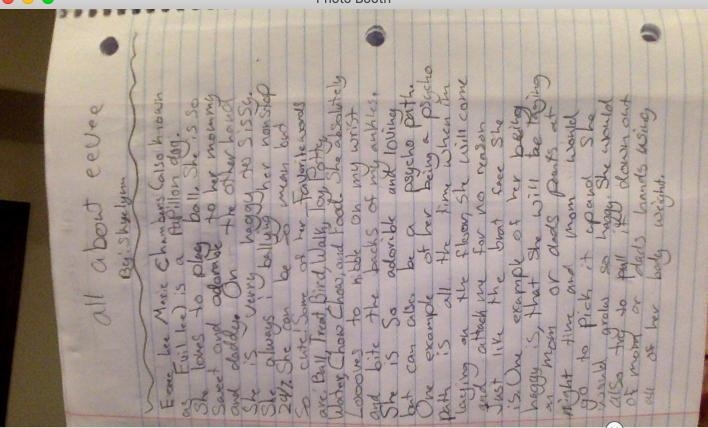 Photo Booth
all about eevee
Eevee Lee Marie Chambers (also known
as Evil Lee) is a Papillon dog.
She loves to play ball. She is so
sweet and adorable to her mommy
and daddy. On the other hand
She is verry haggy to sissy.
She always is bullying her nonstop
24/7. She can be so mean but
so cute! Some of her favorite words
are, Ball, Treat, Bird, Walk, Toy, Potty,
Water, Chow Chow, and Food. She absolutely
Looooves to nibble on my wrist
and bite the backs of my ankles.
She is so adorible and loving
but can also be a psycho path.
One example of her being a psycho
path is all the time when im
laying on the floor, she will come
and attack me for no reason
Just like the brat face she
is. One example of her being
haggy is, that she will be laying
on mom or dads pants at
night time and mom would
go to pick it up and she
would growl so haggy. She would
also try to pull it down out
of mom or dads hands using
all of her body weight.